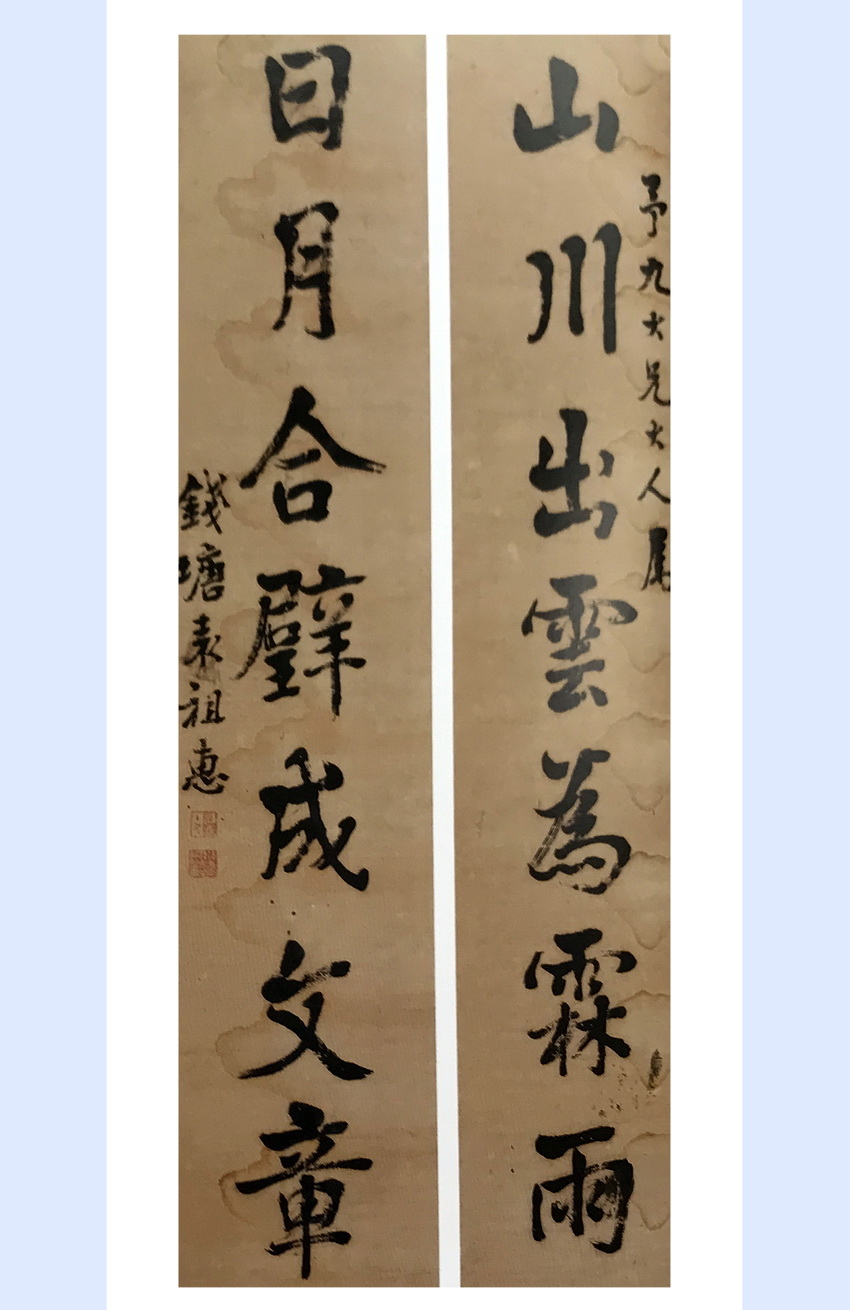 山川出雲為霖雨
予九大兄大人属
日月合璧成文章
錢塘袁祖惠